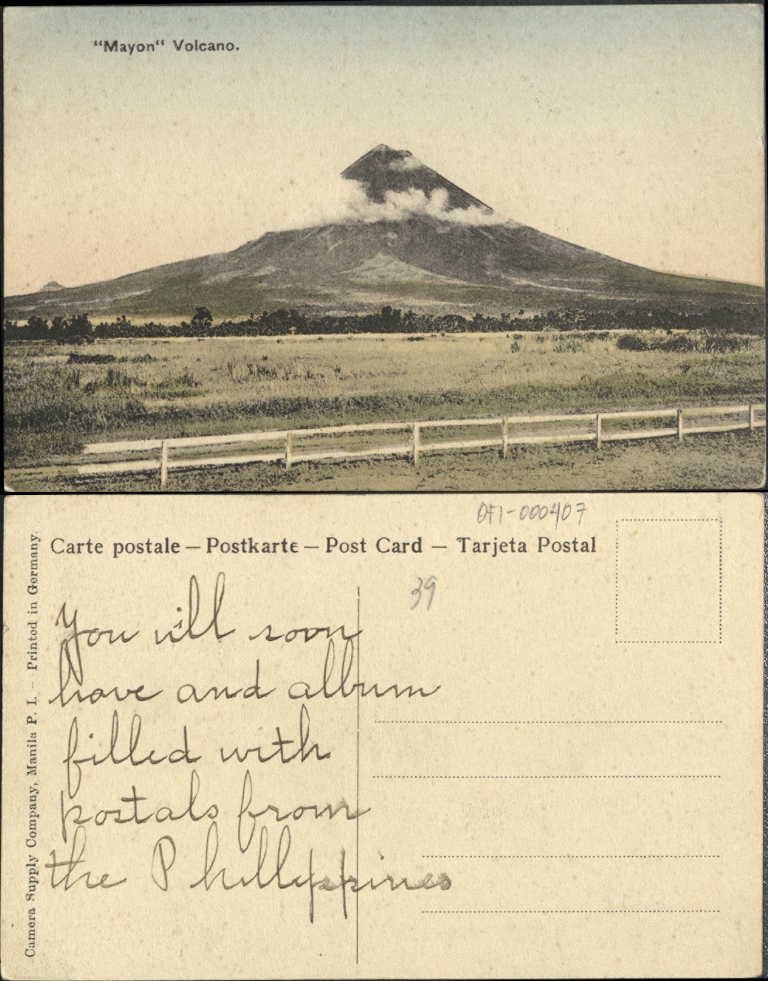 “Mayon“ Volcano.
0F1-000407
Carte postale — Postkarte — Post Card — Tarjeta Postal
39
You will soon
have and album
filled with
postals from
the Phillyppines
Camera Supply Company, Manila P. I. – Printed in Germany.